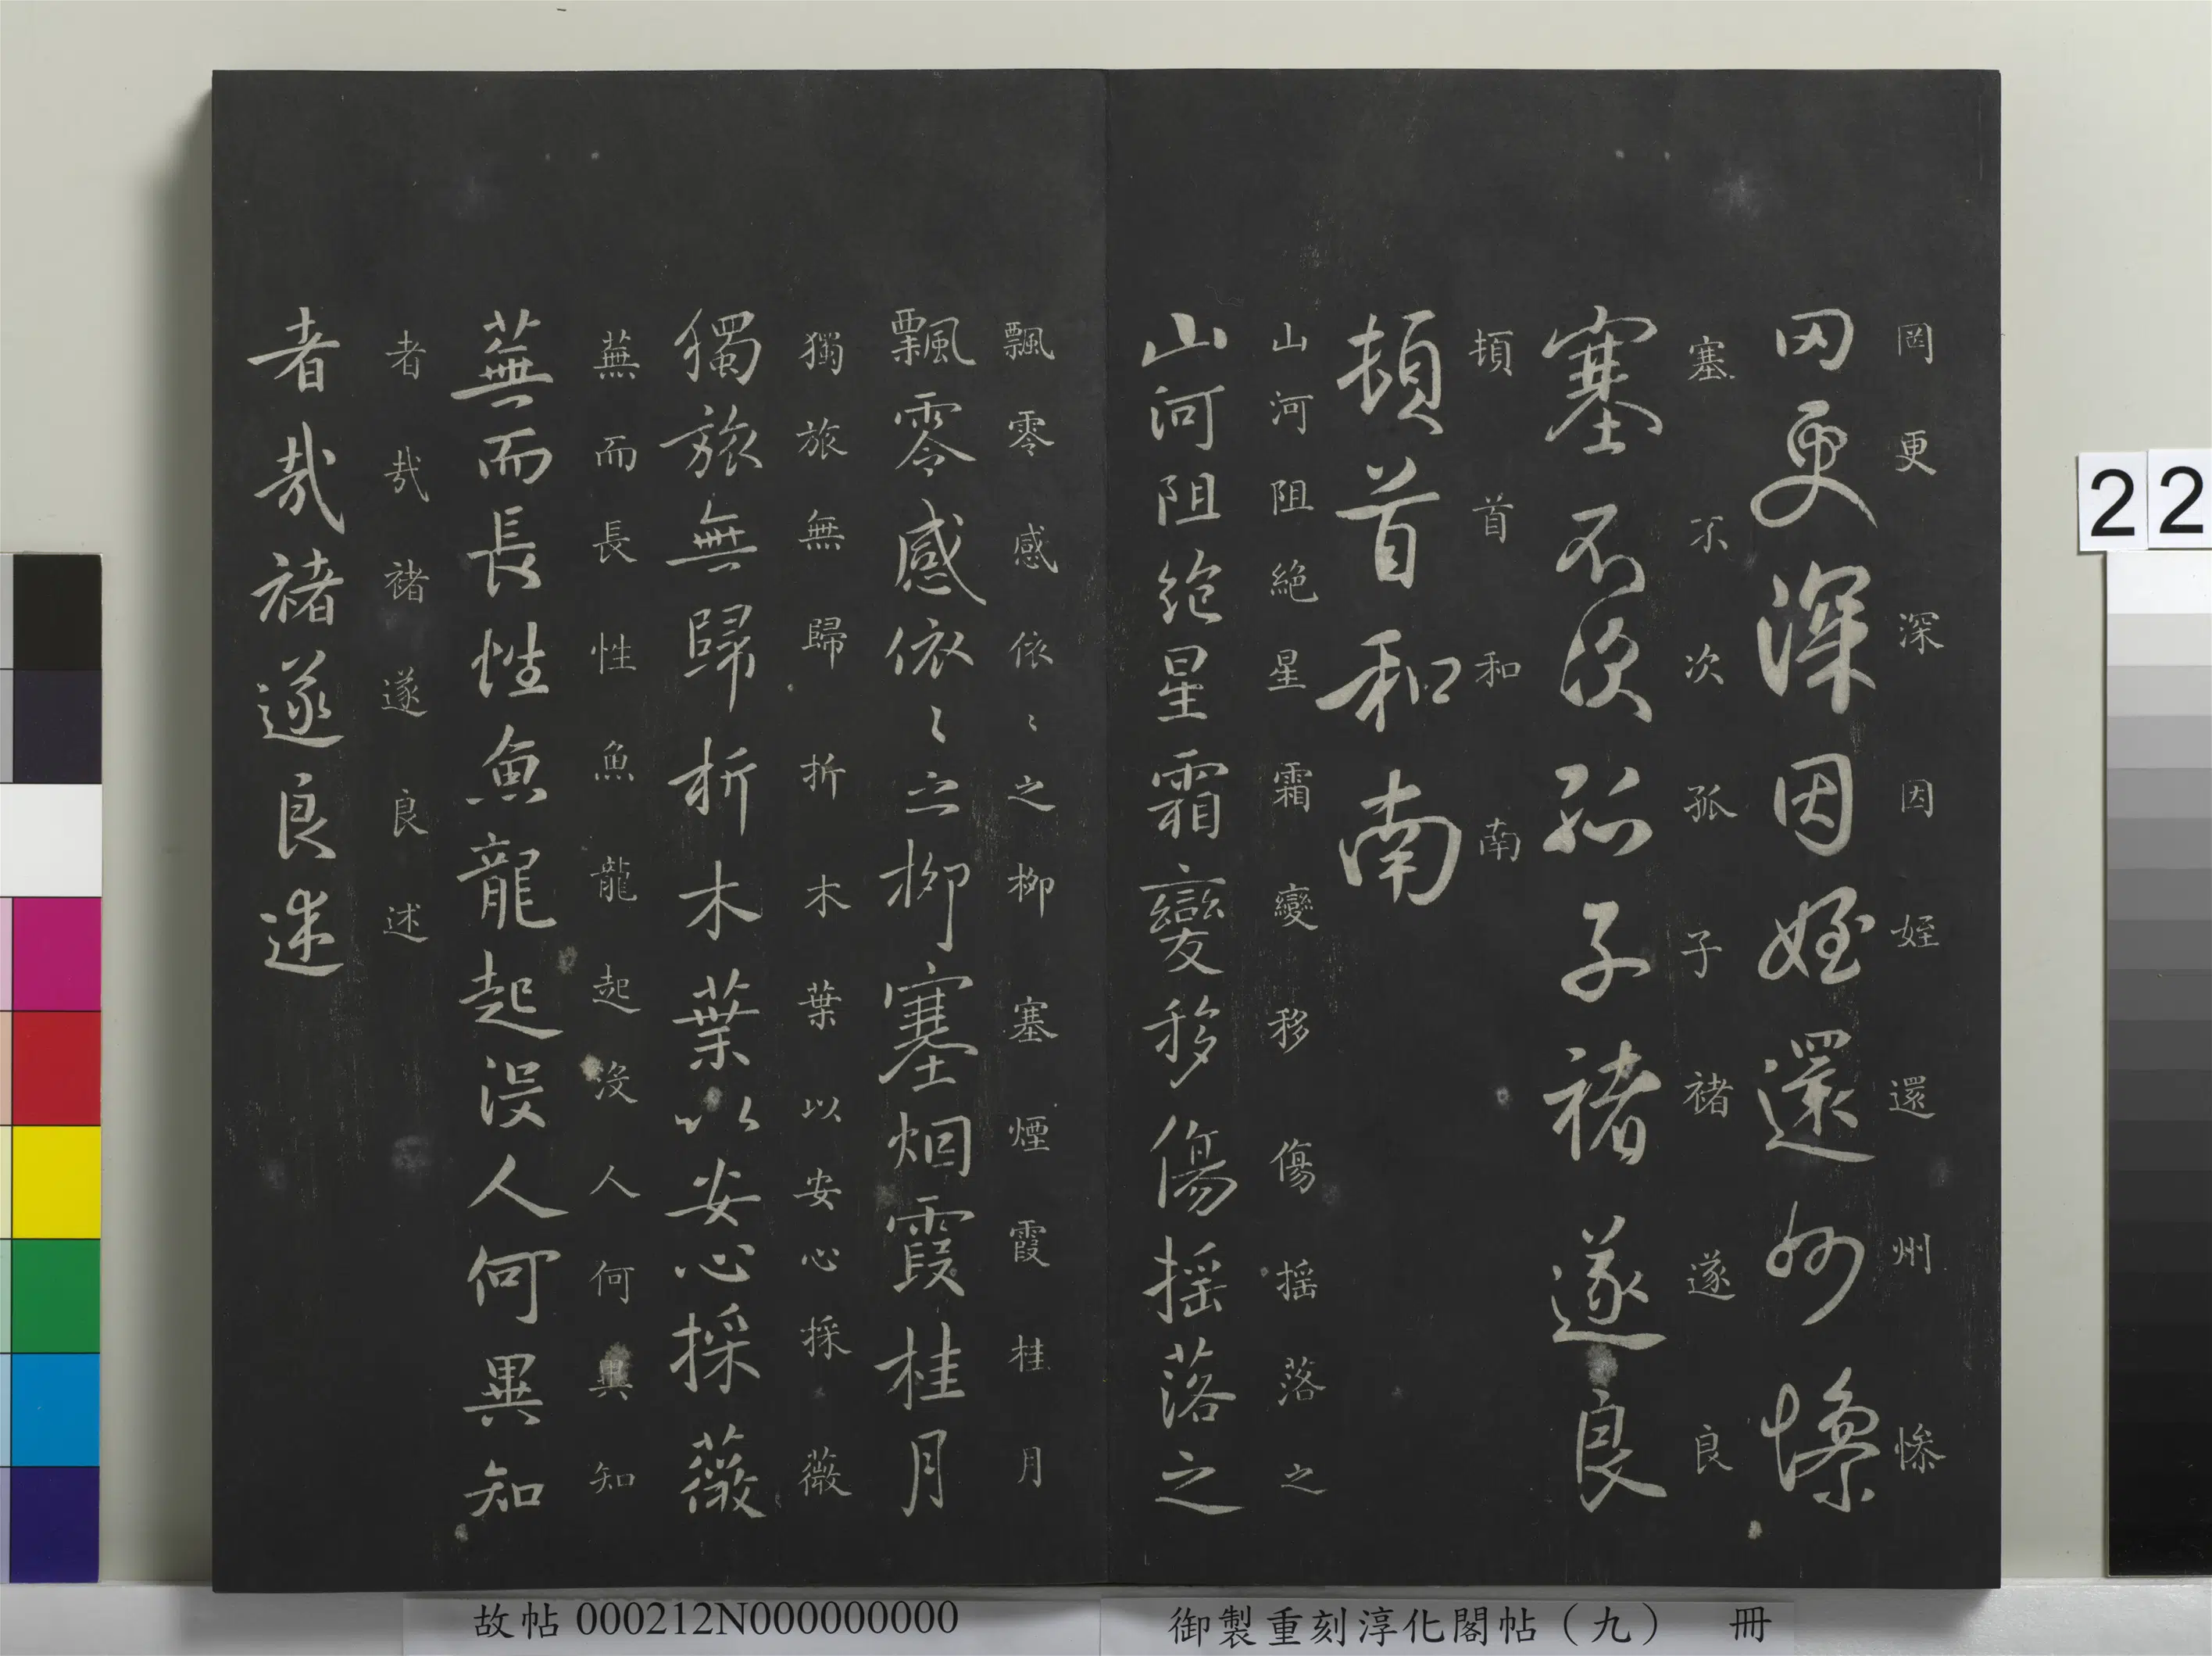 罔更深因姪還州慘
罔更深因姪還州慘
塞不次孤子褚遂良
塞不次孤子褚遂良
頓首和南
頓首和南
山河阻絕星霜變移傷搖落之
山河阻絶星霜變移傷摇落之
飄零感依〻之柳塞煙霞桂月
飄零感依〻之柳塞烟霞桂月
獨旅無歸折木葉以安心採薇
獨旅無歸折木葉以安心採薇
蕪而長性魚龍起沒人何異知
蕪而長性魚龍起没人何異知
者哉褚遂良述
者哉褚遂良述
22
故帖 000212N000000000
御製重刻淳化閣帖（九） 冊